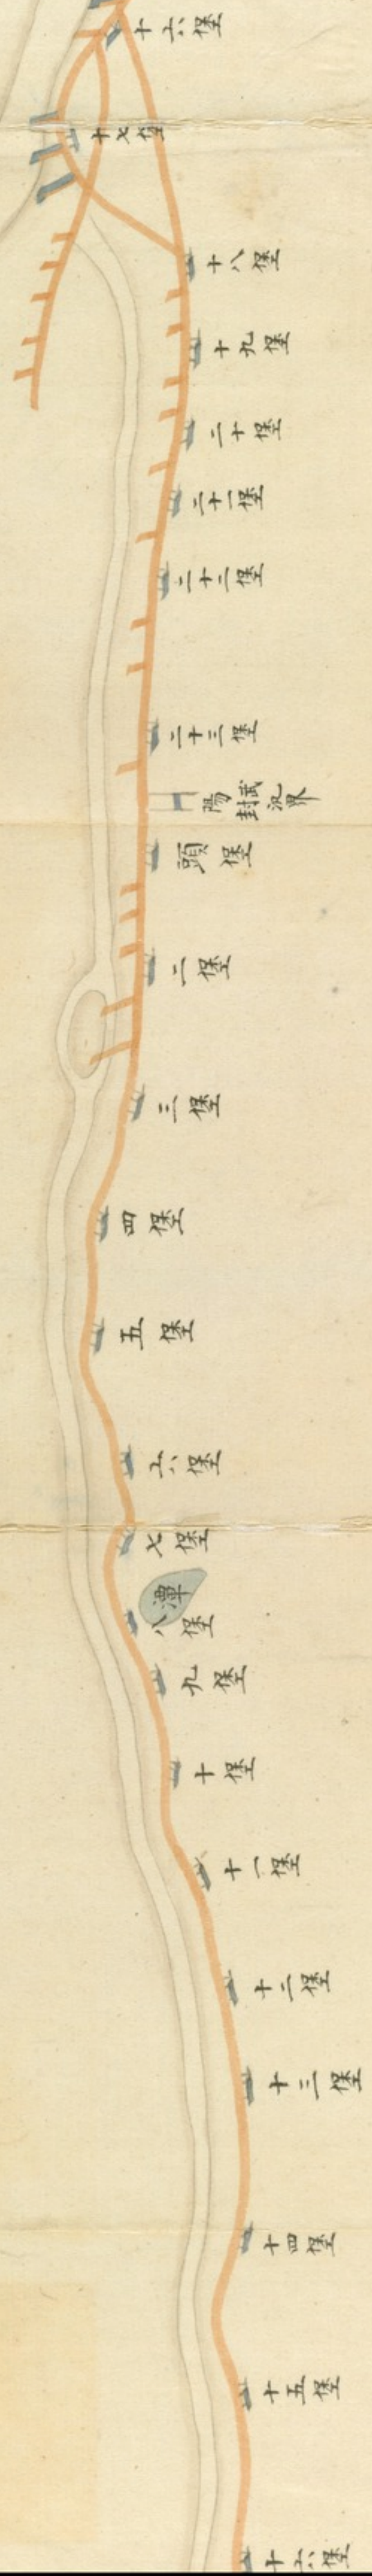 十六堡
十七堡
十八堡
十九堡
二十堡
二十一堡
二十二堡
二十三堡
陽封武汛界
頭堡
二堡
三堡
四堡
五堡
六堡
七堡
潭
八堡
九堡
十堡
十一堡
十二堡
十三堡
十四堡
十五堡
十六堡